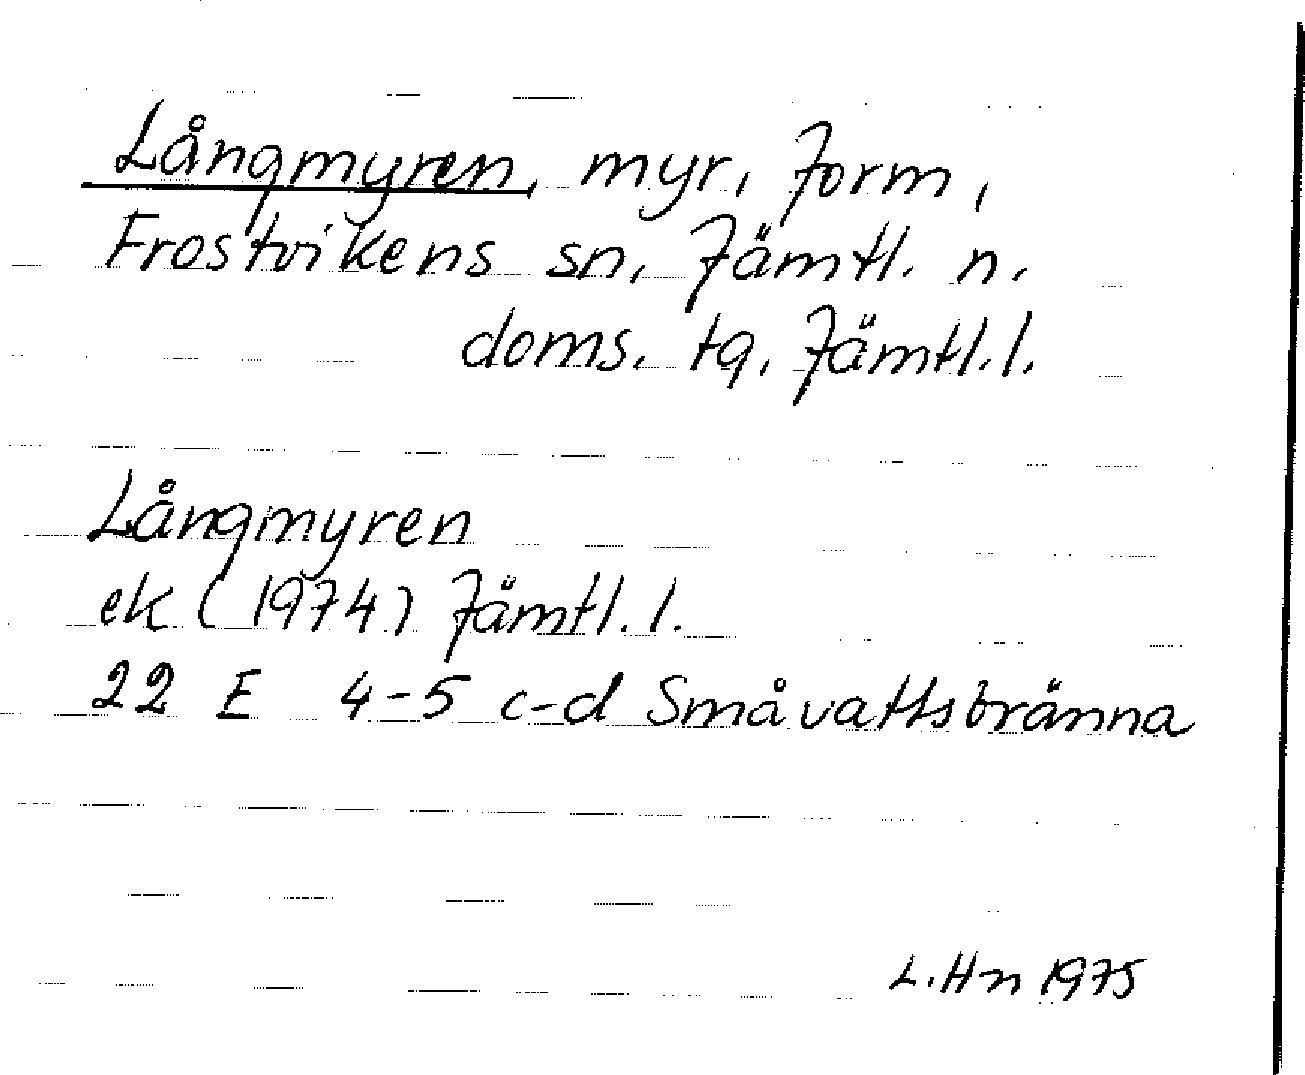 Långmyren, myr, Jorm,
Frostvikens sn, Jämtl. n.
doms. tg, Jämtl.l.
Långmyren
ek (1974) Jämtl.l.
22 E 4-5 c-d Småvattsbränna
L.Hn 1975